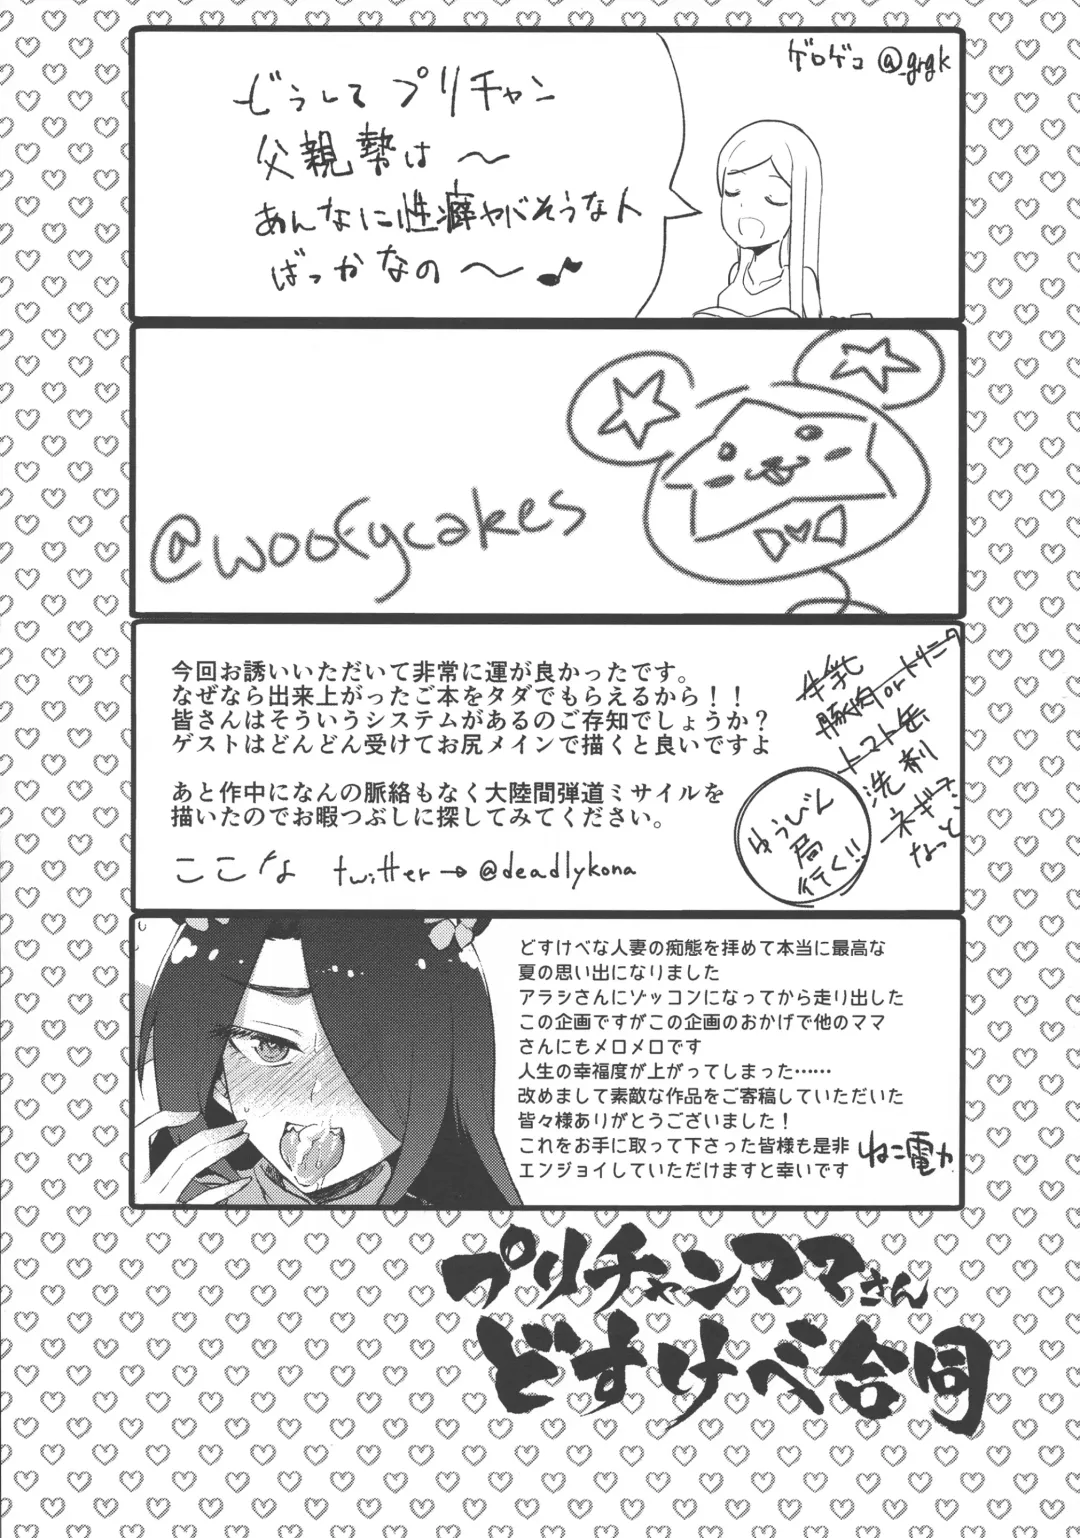 ゲロゲコ @_grgk
どうしてプリチャン
父親勢は〜
あんなに性癖ヤバそうな人
ばっかなの〜♪
@woofycakes
今回お誘いいただいて非常に運が良かったです。
なぜなら出来上がったご本をタダでもらえるから！！
皆さんはそういうシステムがあるのご存知でしょうか？
ゲストはどんどん受けてお尻メインで描くと良いですよ
あと作中になんの脈絡もなく大陸間弾道ミサイルを
描いたのでお暇つぶしに探してみてください。
ここな twitter→@deadlykona
牛乳
豚肉orトリニク
トマト缶
洗剤
ネギ
なっと
ゆうびん
局
行く!!
どすけべな人妻の痴態を拝めて本当に最高な
夏の思い出になりました
アラシさんにゾッコンになってから走り出した
この企画ですがこの企画のおかげで他のママ
さんにもメロメロです
人生の幸福度が上がってしまった……
改めまして素敵な作品をご寄稿していただいた
皆々様ありがとうございました！
これをお手に取って下さった皆様も是非
エンジョイしていただけますと幸いです
ねこ電力
プリチャンママさん
どすけべ合同